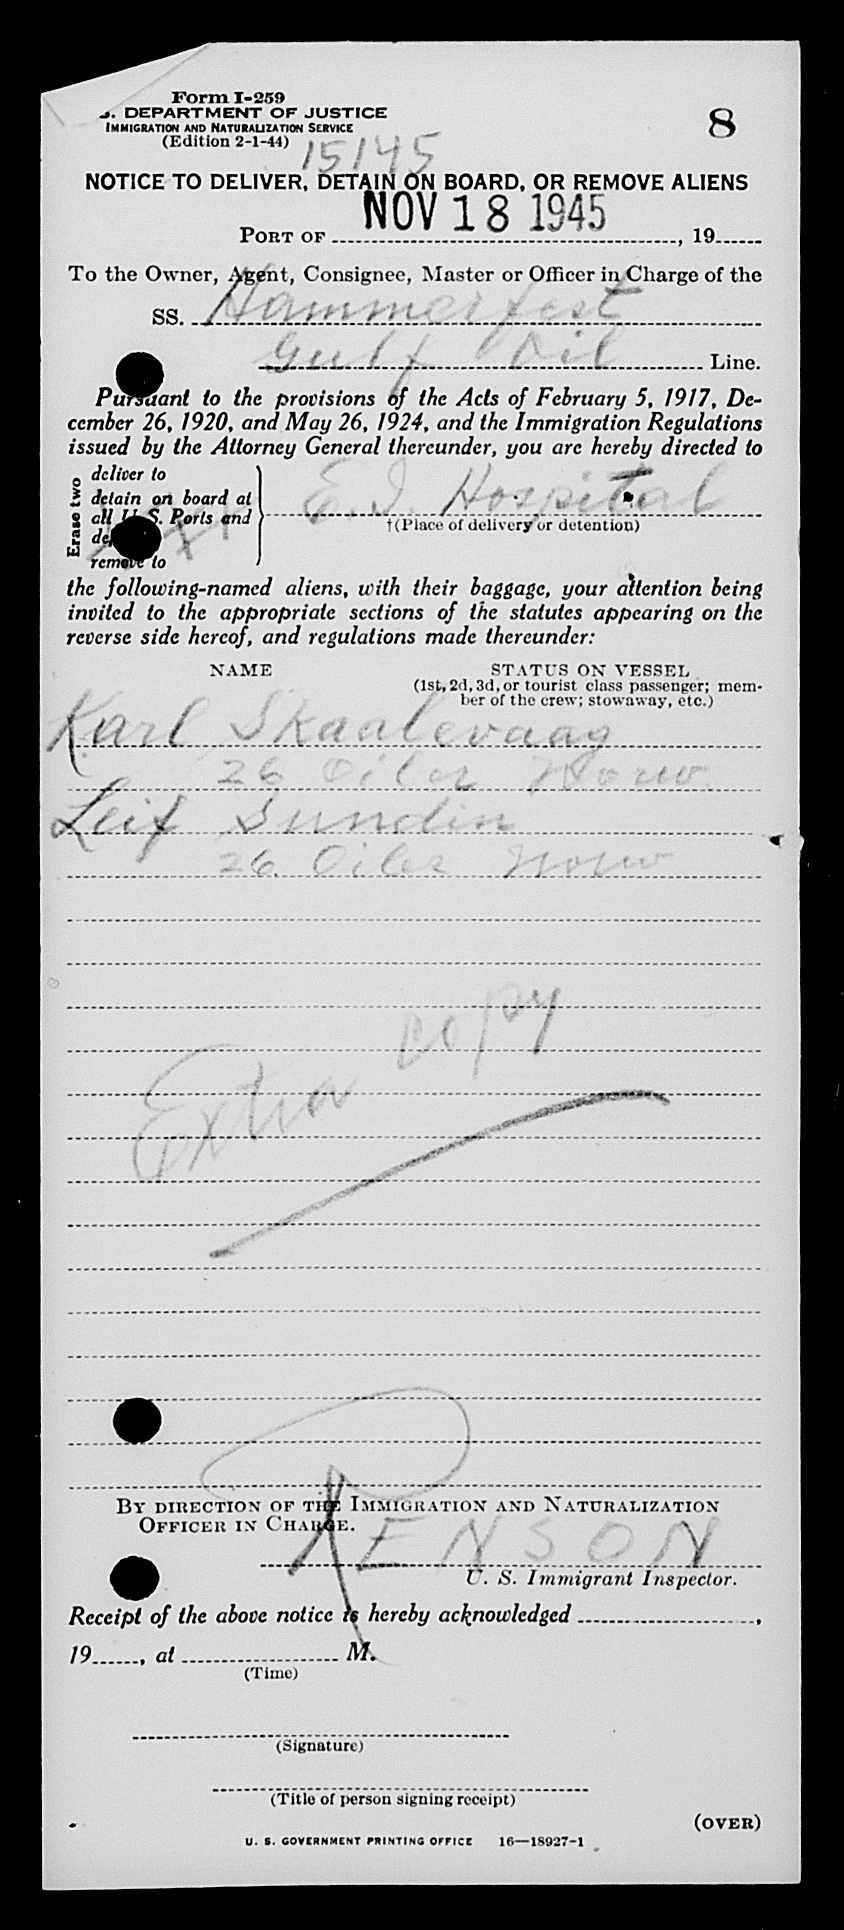 Form I-259
S. DEPARTMENT OF JUSTICE
IMMIGRATION AND NATURALIZATION SERVICE
(Edition 2-1-44)
8
15145
NOTICE TO DELIVER, DETAIN ON BOARD, OR REMOVE ALIENS
NOV 18 1945
PORT OF , 19
To the Owner, Agent, Consignee, Master or Officer in Charge of the
SS. Hammerfest
Gulf Oil Line.
Pursuant to the provisions of the Acts of February 5, 1917, De-
cember 26, 1920, and May 26, 1924, and the Immigration Regulations
issued by the Attorney General thereunder, you are hereby directed to
Erase two
deliver to
detain on board at
all U. S. Ports and
remove to
E. I. Hospital
†(Place of delivery or detention)
the following-named aliens, with their baggage, your attention being
invited to the appropriate sections of the statutes appearing on the
reverse side hereof, and regulations made thereunder:
NAME STATUS ON VESSEL
(1st, 2d, 3d, or tourist class passenger; mem-
ber of the crew; stowaway, etc.)
Karl Skaalevaag
26 Oiler Norw.
Leif Sundin
26. Oiler Norw
Extra copy
BY DIRECTION OF THE IMMIGRATION AND NATURALIZATION
OFFICER IN CHARGE.
XENSON
U. S. Immigrant Inspector.
Receipt of the above notice is hereby acknowledged ,
19 , at M.
(Time)
(Signature)
(Title of person signing receipt)
(OVER)
U. S. GOVERNMENT PRINTING OFFICE 16—18927-1